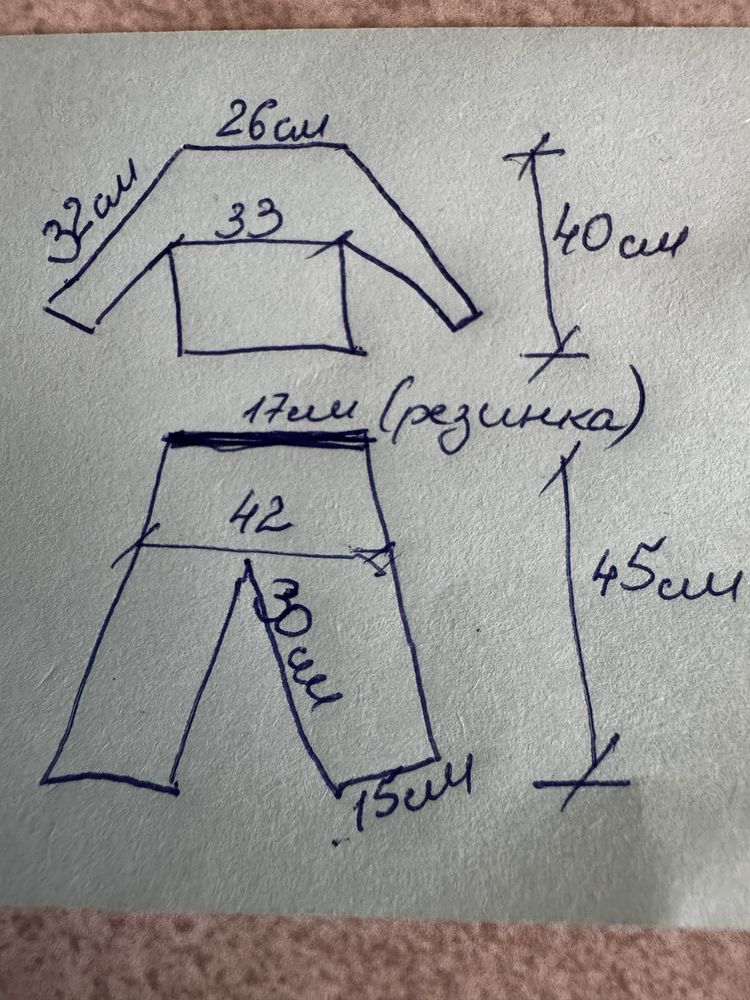 26см
32см
33
40см
17см (резинка)
42
45см
30см
15см